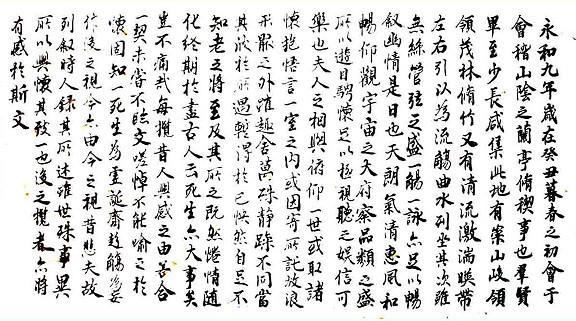 永和九年歲在癸丑暮春之初會于
會稽山陰之蘭亭脩稧事也羣賢
畢至少長咸集此地有崇山峻領
領茂林脩竹又有清流激湍暎帶
左右引以為流觴曲水列坐其次雖
無絲管弦之盛一觴一詠亦足以暢
叙幽情是日也天朗氣清惠風和
暢仰觀宇宙之大府察品類之盛
所以遊目騁懷足以極視聽之娛信可
樂也夫人之相與俯仰一世或取諸
懷抱悟言一室之内或因寄所託放浪
形骸之外雖趣舍萬殊靜躁不同當
其欣於所遇輙得於己怏然自足不
知老之將至及其所之既然惓情隨
化終期於盡古人云死生亦大事矣
豈不痛哉每攬昔人興感之由若合
一契未嘗不臨文嗟悼不能喻之於
懷固知一死生為虛誕齊彭觴為妄
作後之視今亦由今之視昔悲夫故
列叙時人錄其所述雖世殊事異
所以興懷其致一也後之攬者亦將
有感於斯文